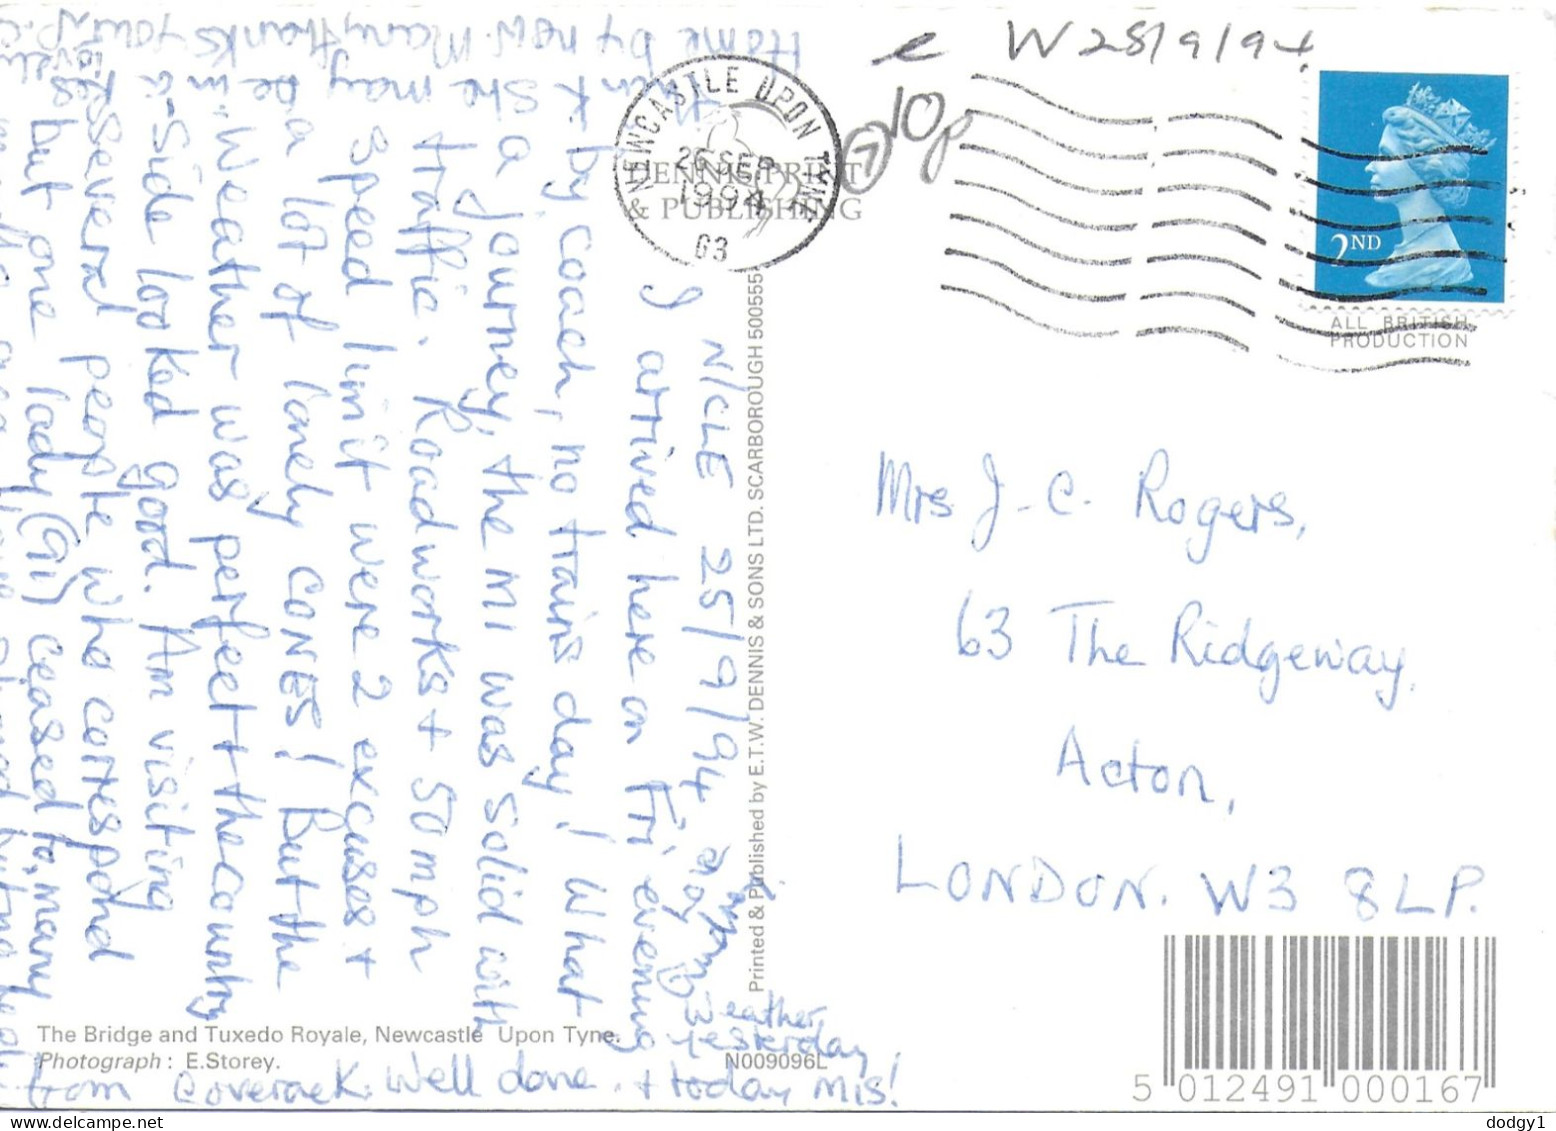 e W 28/9/94
⑦ 10p
NEWCASTLE UPON TYNE
26 SEP
1994
03
DENNIS PRINT
& PUBLISHING
2ND
ALL BRITISH
PRODUCTION
Mrs J. C. Rogers,
63 The Ridgeway,
Acton,
LONDON. W3 8LP.
N/CLE 25/9/94
I arrived here on Fri evening
by coach, no trains day! What
a journey, the M1 was solid with
traffic. Roadworks + 50mph
speed limit were 2 excuses +
a lot of lonely CONES! But the
Weather was perfect + the country
-side looked good. Am visiting
several people who correspond
but one lady (91) ceased to, many
think she may be in a
Home by now. Many thanks your P.C
from Coverack. Well done.
Weather,
yesterday
+ today Mis!
Printed & Published by E.T.W. DENNIS & SONS LTD. SCARBOROUGH 500555
The Bridge and Tuxedo Royale, Newcastle Upon Tyne.
Photograph : E.Storey.
N009096L
5 012491 000167
dodgy1